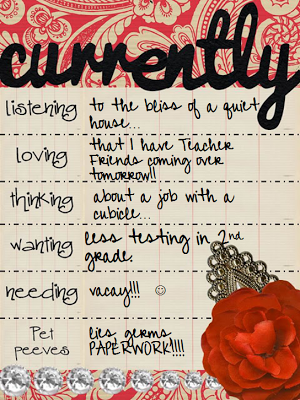 currently
listening
to the bliss of a quiet
house...
loving
that I have Teacher
Friends coming over
tomorrow!!
thinking
about a job with a
cubicle...
wanting
less testing in 2nd
grade.
needing
vacay!!! ☺
Pet
peeves
lies, germs,
PAPERWORK!!!!